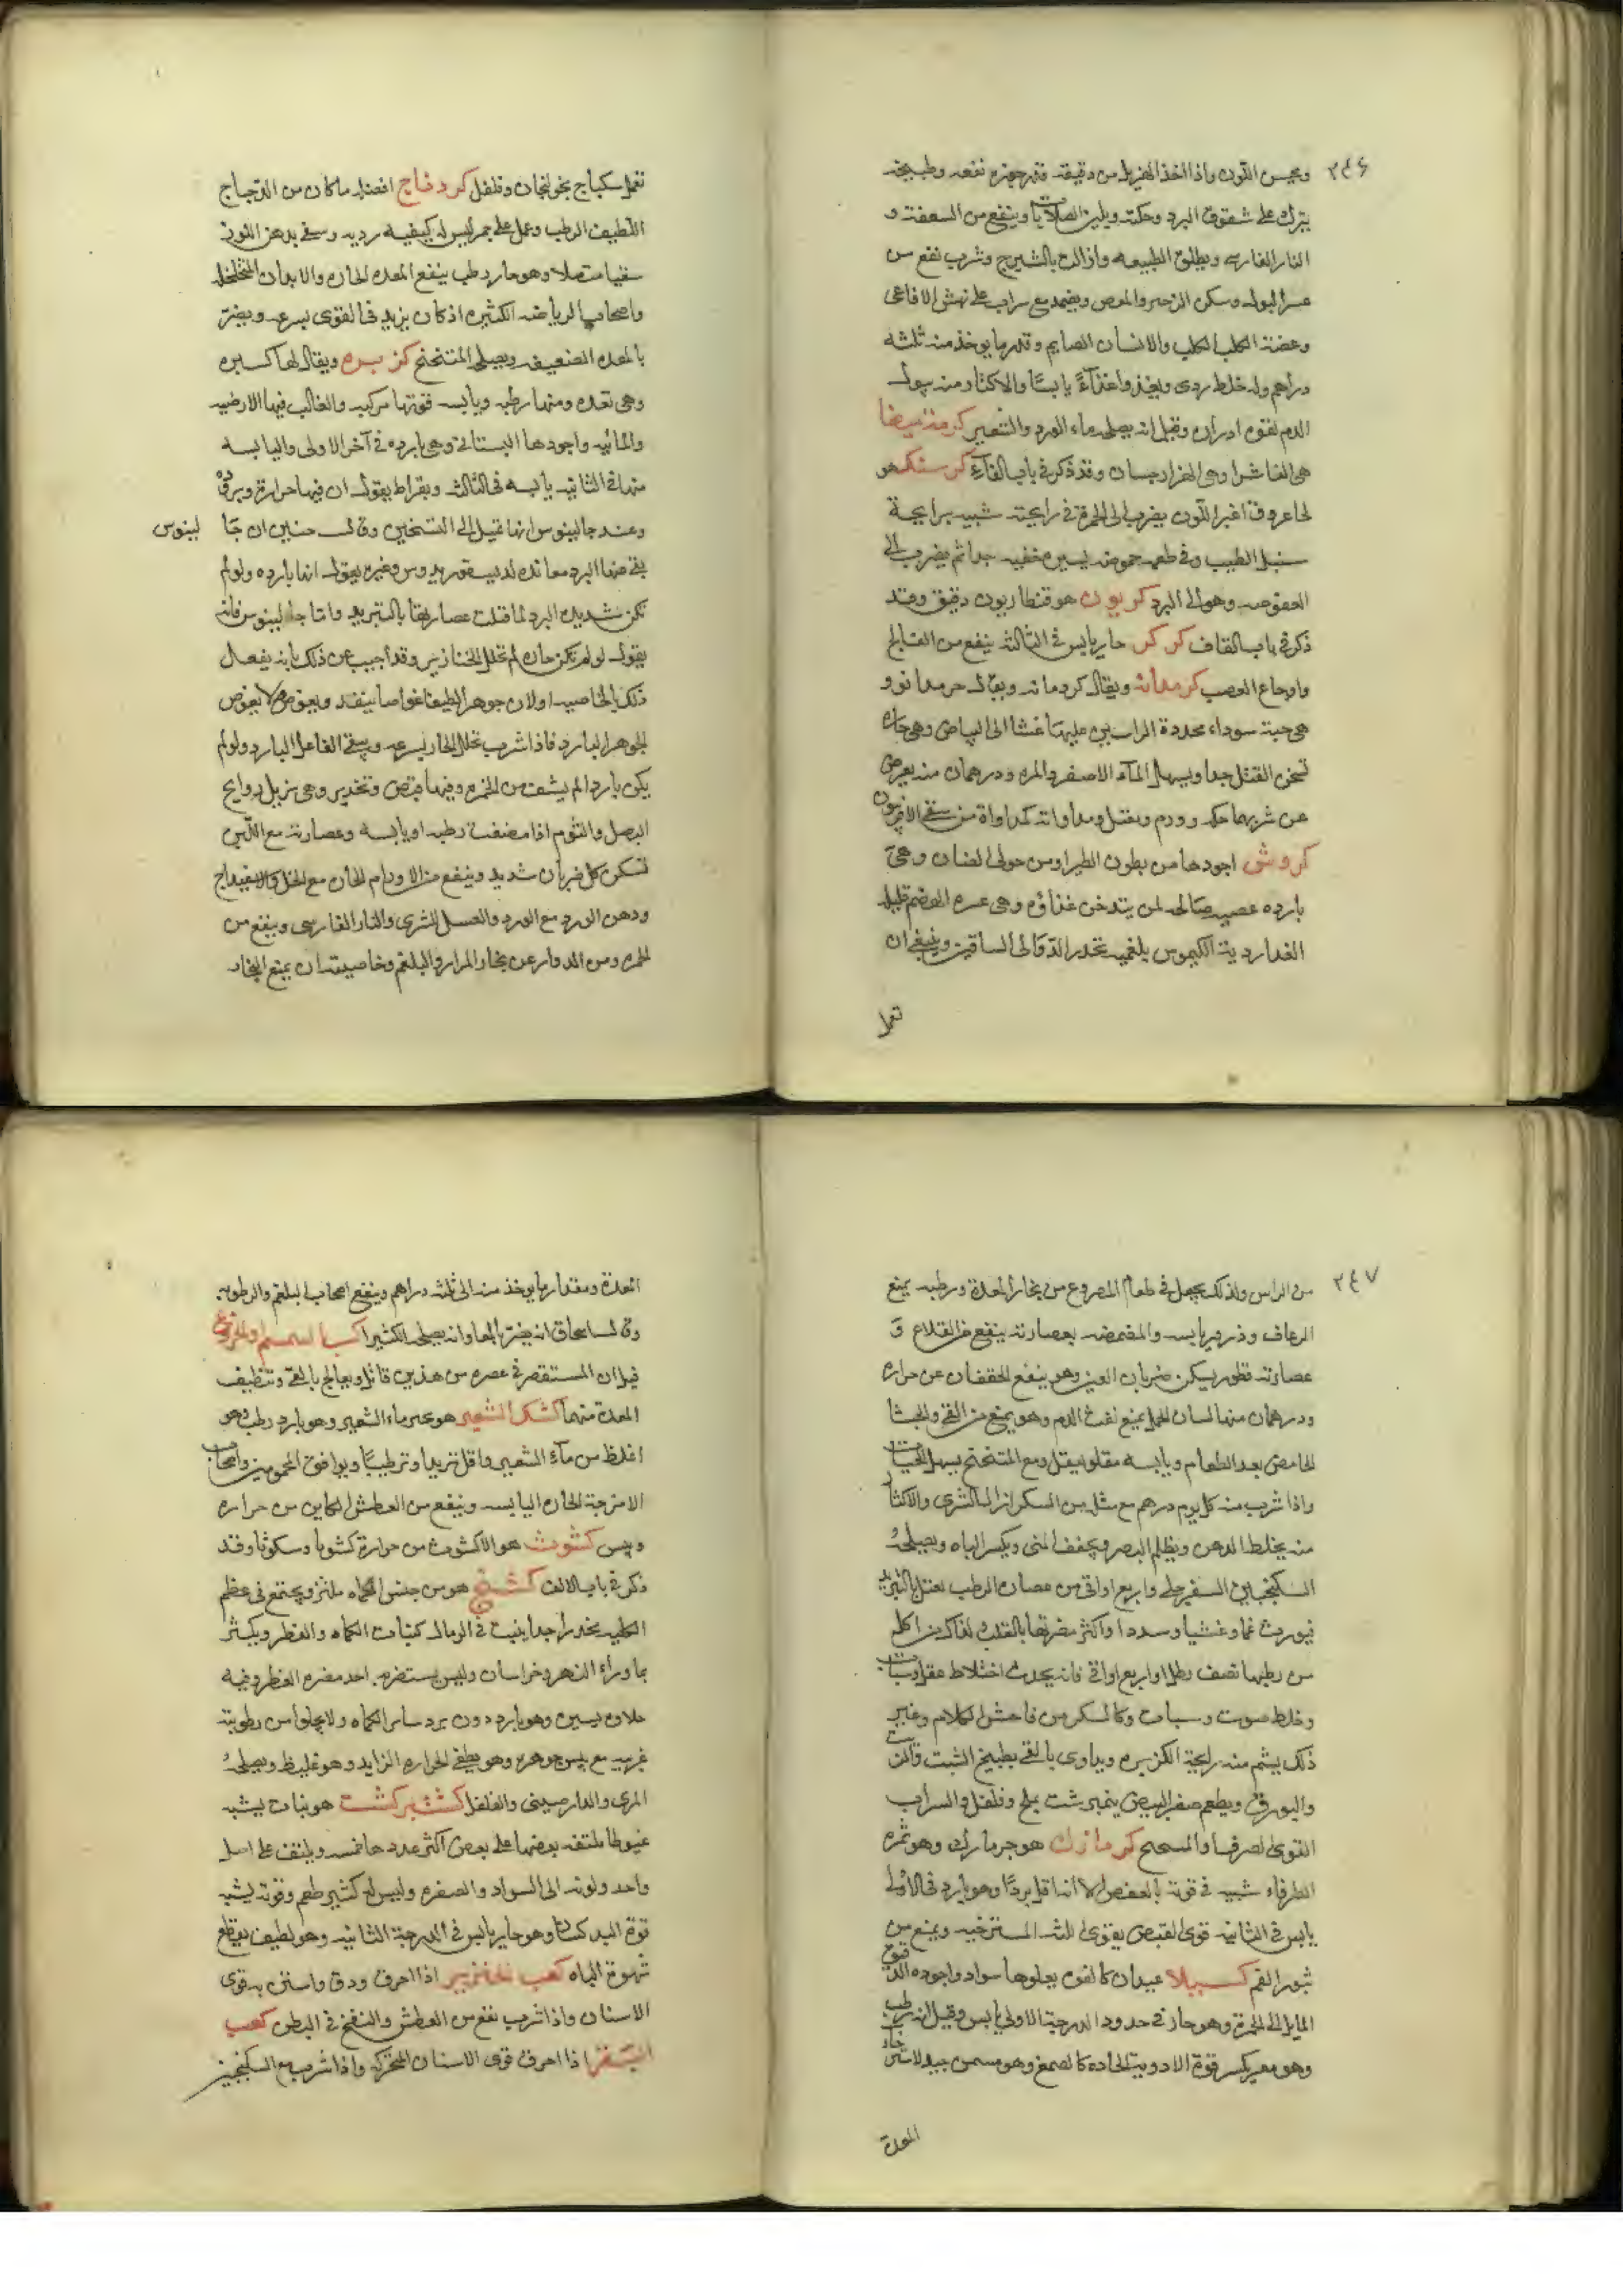 ٢٤٦
ويحسن اللون واذا اخذ المهزول من دقيقه قدر جوزه نفعه وطبيخه
يترك على شقوق البرد وحكته ويلين الصلابات وينفع من السعفة و
النار الفارسى ويطلق الطبيعه واذا لت بالشيرج وشرب نفع من
عسر البول وسكن الزحير والمغص ويضمد مع شراب على نهش الافاعى
وعضة الكلب الكلب والانسان الصايم وقدر ما يوخذ منه ثلثه
دراهم وله خلط ردى ويغذوا غذآءً يابسًا والاكثار منه يبول
الدم لقوه ادراره وقيل انه يصلحه ماء الورد والشعير كرمة بيضا
هى الفاشرا وهى الهزارجسان وقد ذكر فى باب الفآء كرسنك هو
لحا عروق اغبر اللون يضرب الى الحمرة فى رايحته شبيه برايحة
سنبل الطيب وفى طعمه حموضه يسيره خفيه جدا ثم يضرب الى
العفوصه وهو الى البرد كريون هو قنطاريون دقيق وقد
ذكر فى باب القاف كركر حار يابس فى الثالثه ينفع من الفالج
واوجاع العصب كرمدانه ويقال كردمانه ويقال حرمدانو و
هى حبة سوداء محددة الراسين عليها غشا الى البياض وهى حاره
تسخن القتل جدا ويسهل المآء الاصفر والمره ودرهمان منه يعرض
عن شربهما حكه وورم ويقتل ومداواته كمداواة من سقى الافربيون
كروش اجودها من بطون الطير اومن حولى الضان وهى
بارده عصبيه صالحه لمن يتدخن غذاؤه وهى عسره الهضم قليله
الغدا ردية الكيموس بلغميه تحدر الدوالى الساقين وينبغى ان
تعمل
تعمل سكباج بخولنجان وفلفل كردناج افضله ما كان من الدجاج
اللطيف الرطب وعمل على جمر ليس له كيفيه رديه وسقى بدهن اللوز
سقيا متصلا وهو حار رطب ينفع المعده الحاره والابدان المتخلخله
واصحاب الرياضه الكثيره اذ كان يزيد فى القوى بسرعه ويضر
بالمعده الضعيفه ويصلحه المتنحنح كزبره ويقال لها كسبره
وهى تعده ومنها رطبه ويابسه قوتها مركبه والغالب فيها الارضيه
والمائيه واجودها البستانى وهى بارده فى آخر الاولى واليابسه
منها فى الثانيه يابسه فى الثالثه وبقراط يقول ان فيها حرارة وبروده
وعند جالينوس انها تميل الى التسخين وقال حنين ان جا
لينوس
نفى عنها البرد معانده لديسقوريدوس وغيره يقول انها بارده ولو لم
تكن شديدة البرد لما قتلت عصارتها بالتبريد واما جالينوس فانه
يقول لو لم تكن حاره لم تحلل الخنازير وقد اجيب عن ذلك بانه يفعل
ذلك بالخاصيه اولان جوهرا لطيفا غواصا ينفذ ويغوص ولا يغوص
الجوهر البارد فاذا شرب تحلل الحار بسرعه ويبقى الفاعل البارد ولو لم
يكن باردا لم يشف من الحمره وفيها قبض وتخدير وهى تزيل روايح
البصل والثوم اذا مضغت رطبه او يابسه وعصارته مع اللبن
تسكن كل ضربان شديد وينفع من الاورام الحاره مع الخل والاسفيداج
ودهن الورد مع الورد والعسل للشرى والنار الفارسى وينفع من
الحمره ومن الدوار عن بخار المرار والبلغم وخاصيته ان يمنع البخار
٢٤٧
من الراس ولذلك يجعل فى طعام المصروع من بخار المعدة ورطبه يمنع
الرعاف وذرور يابسه والمضمضه بعصارته ينفع من القلاع و
عصارته قطور يسكن ضربان العين وهو ينفع الخفقان عن حراره
ودرهمان منها لسان الحمل يمنع نفث الدم وهو يمنع من القى والجشا
الحامض بعد الطعام ويابسه مقلو يعقل ومع المتنحنح يسهل الحيات
واذا شرب منه كل يوم درهم مع مثله من السكر ازال الشرى والاكثار
منه يخلط الذهن ويظلم البصر ويجفف المنى ويكسر الباه ويصلحه
السكنجبين السفرجلى واربع اواقى من عصاره الرطب يقتل بالتبريد
فيورث غما وغشيا وسددا واكثر مضرتها بالقلب لذلك من اكل
من رطبها نصف رطل او اربع اواقى فانه يحدث اختلاط عقل وسبات
وغلظ صوت وسبات وكالسكر من فاحش الكلام وغير
ذلك يشم منه رايحة الكزبره ويداوى بالقى بطبيخ الشبت والزيت
والبورق ويطعم صفر البيض نيمبرشت بملح وفلفل والشراب
القوى الصرف او المسحج كزمازك هو جزمازك وهو ثمره
الطرفاء شبيه فى قوته بالعفص الا انه اقل بردًا وهو بارد فى الاولى
يابس فى الثانيه قوى القبض يقوى اللثه المسترخيه ويمنع من
بثور الفم كسيلا عيدان كالفوه يعلوها سواد واجوده الدقيق
المايل الى الحمرة وهو حار فى حدود الدرجة الاولى يابس وقيل انه رطب
وهو مغر يكسر قوة الادوية الحاده كالصمغ وهو مسمن جيد لاسترخاء
المعدة
المعدة ومقدار ما يوخذ منه الى ثلثه دراهم وينفع اصحاب البلغم والرطوبه
وقال اسحاق انه يضر بالمعا وانه يصلحه الكثيرا كسبا لسمسم والخروع
قيل ان المستقصر فى عصره من هذين قاتل ويعالج بالقى وتنظيف
المعدة منهما كشك الشعير هو غير ماء الشعير وهو بارد رطب وهو
اغلظ من مآء الشعير واقل تبريدا وترطيبًا ويوافق المحمومين واصحاب
الامزجة الحاره اليابسه وينفع من العطش الكاين من حراره
ويبس كشوث هو الاكشوث من حرارة كشوبا وسكوثا وقد
ذكر فى باب الالف كشنج هو من جنس الكماه ملزز ويجتمع فى عظم
الكليه يخدر جدا ينبت فى الرمال كنبات الكماه والفطر ويكثر
بما وراء النهر وخراسان وليس يستضر به احد مضره الفطر وفيه
حلاوه يسيره وهو بارد دون برد ساير الكماه ولا يخلوا من رطوبته
غريبه مع يبس جوهره وهو يطفى الحراره الزايد وهو غليظ ويصلحه
المرى والدارصينى والفلفل كشت بركشت هو نبات يشبه
خيوطا ملتفه بعضها على بعض اكثر عددها خمسه ويلتف على اصل
واحد ولونه الى السواد والصفره وليس له كثير طعم وقوته يشبه
قوة البدكشاو وهو حار يابس فى الدرجة الثانيه وهو لطيف يقطع
شهوة الباه كعب الخنزير اذا احرق ودق واستن به قوى
الاسنان واذا شرب نفع من العطش والنفخ فى البطن كعب
البقر اذا احرق قوى الاسنان المتحركه واذا شرب مع السكنجبين